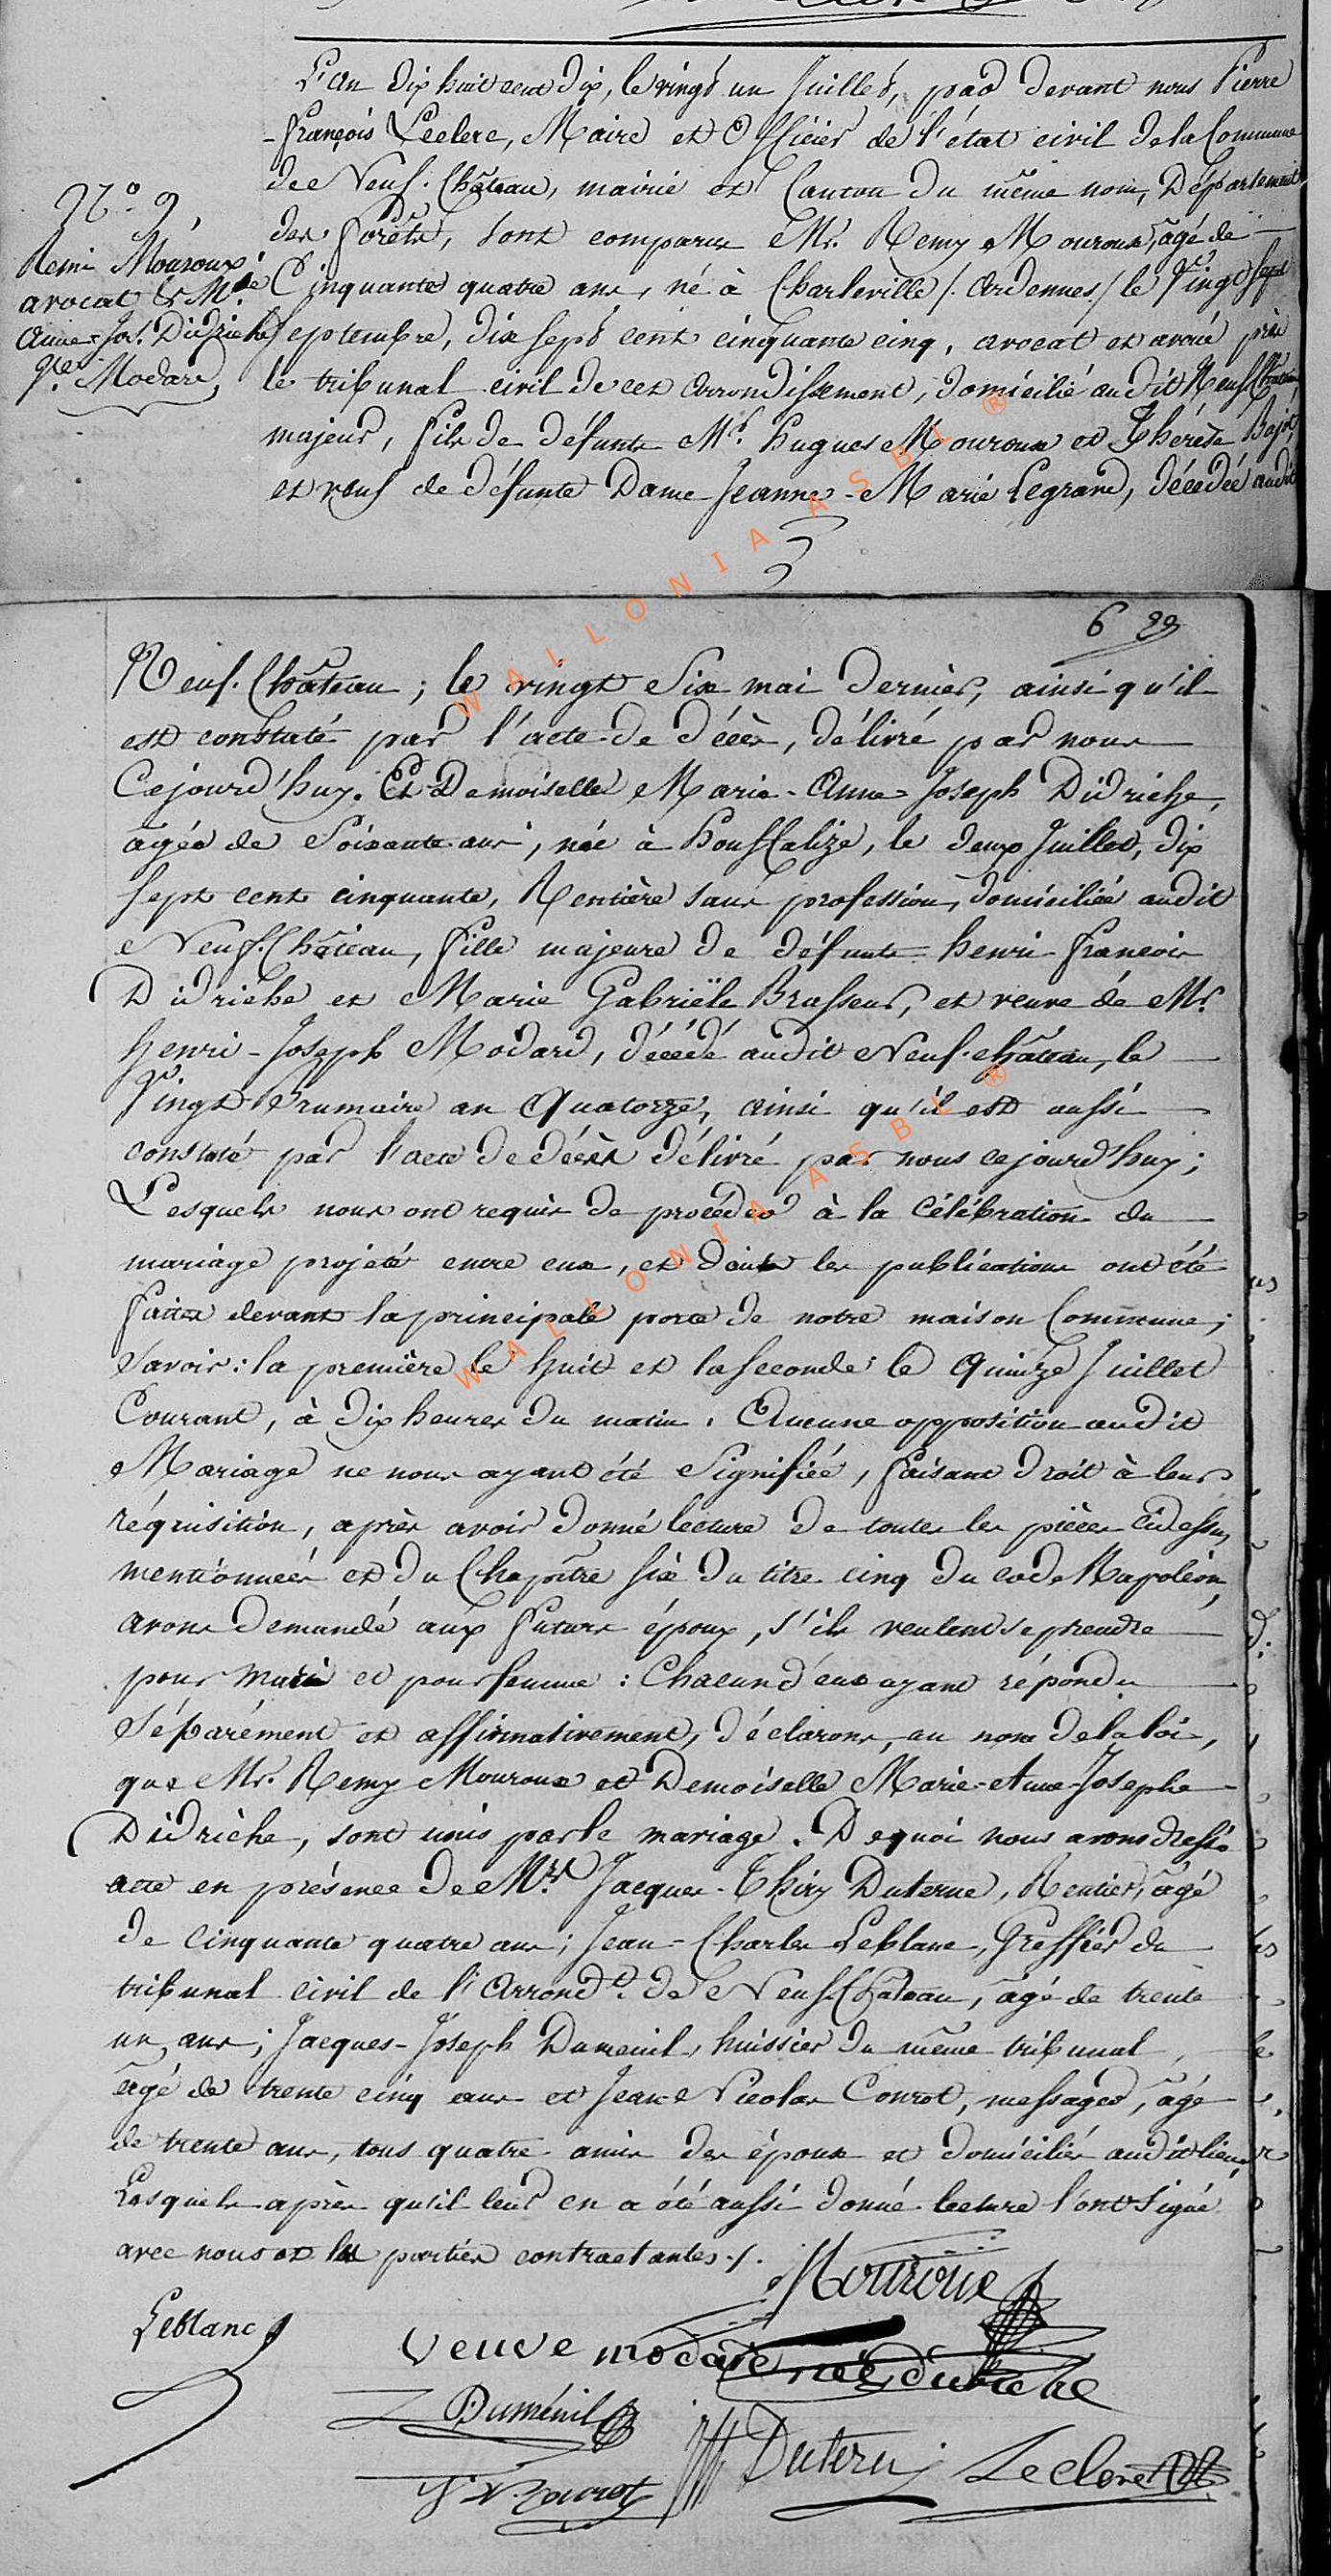 L'an dix huit cent dix, le vingt un Juillet, par devant nous Pierre
-françois Leclerc, Maire et Officier de l'état civil de la Commune
de Neuf-Château, mairie et Canton du même nom, Département
des forêts, sont comparus Mr. Remy Mouroux, âgé de
N.° 9,
Remi Mouroux
avocat & M.de
anne-Jos. Didriche
V.e Modard,
Cinquante quatre ans, né à Charleville /. Ardennes / le Vingt Sept
Septembre, dix sept cent cinquante cinq, avocat et avoué près
le tribunal civil de cet arrondissement, domicilié audit Neufchâteau,
majeur, fils de défunts Mr. hugues Mouroux et Thérèse Bajot,
et veuf de défunte Dame Jeanne-Marie Legrand, décédée audit
WALLONIA ASBL ®
6 29
Neuf-Château ; le vingt Six mai dernier, ainsi qu'il
est constaté par l'acte de décès, délivré par nous
Cejourd'huy. Et Demoiselle Marie-Anne-Joseph Didriche,
âgée de Soixante ans, née à houffalize, le deux Juillet, dix
sept cent cinquante, Rentière sans profession, domiciliée audit
Neuf-Château, fille majeure de défunts henri-françois
Didriche et Marie Gabrièle Brasseur, et veuve de Mr.
henri-Joseph Modard, décédé audit Neuf-château, le
Vingt Brumaire an Quatorze, ainsi qu'il est aussi
constaté par l'acte de décès délivré par nous cejourd'huy ;
Lesquels nous ont requis de procéder à la célébration du
mariage projeté entre eux, et dont les publications ont été
faites devant la principale porte de notre maison Commune ;
Savoir : la première le huit et la seconde le quinze Juillet
Courant, à dix heures du matin. Aucune opposition audit
Mariage ne nous ayant été Signifiée, faisant droit à leur
réquisition, après avoir donné lecture de toutes les pièces cidessus
mentionnées et du Chapître six du titre cinq du code Napoléon,
avons demandé aux futurs époux, s'ils veulent se prendre
pour mari et pour femme : Chacun d'eux ayant répondu
Séparément et affirmativement, déclarons, au nom de la loi,
que Mr. Remy Mouroux et Demoiselle Marie-Anne-Josephe
Didrièhe, sont unis par le mariage. De quoi nous avons dressé
acte en présence de Mrs. Jacques-Thiry Duterne, Rentier, âgé
de cinquante quatre ans ; Jean-Charles Leblanc, Greffier du
tribunal civil de l'Arrondt. de Neuf-Château, âgé de trente
un ans ; Jacques-Joseph Dumenil, huissier du même tribunal,
âgé de trente cinq ans et Jean Nicolas Conrot, messager, âgé
de trente ans, tous quatre amis des époux et domiciliés audit lieu,
Lesquels après qu'il leur en a été aussi donné lecture l'ont signé
avec nous et les parties contractantes ./.
Mouroux
Leblanc
veuve modard née didriche
Duménil
Duterne
Leclerc
J. N. Conrot
WALLONIA ASBL ®